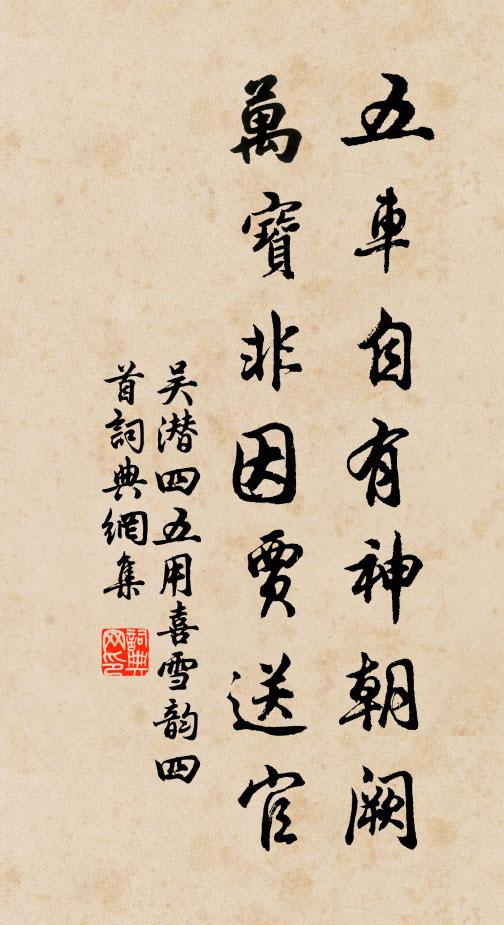 五車自有神朝闕
萬寶非因賈送官
吴潜四五用喜雪韵四
首詞典網集
詞典网印